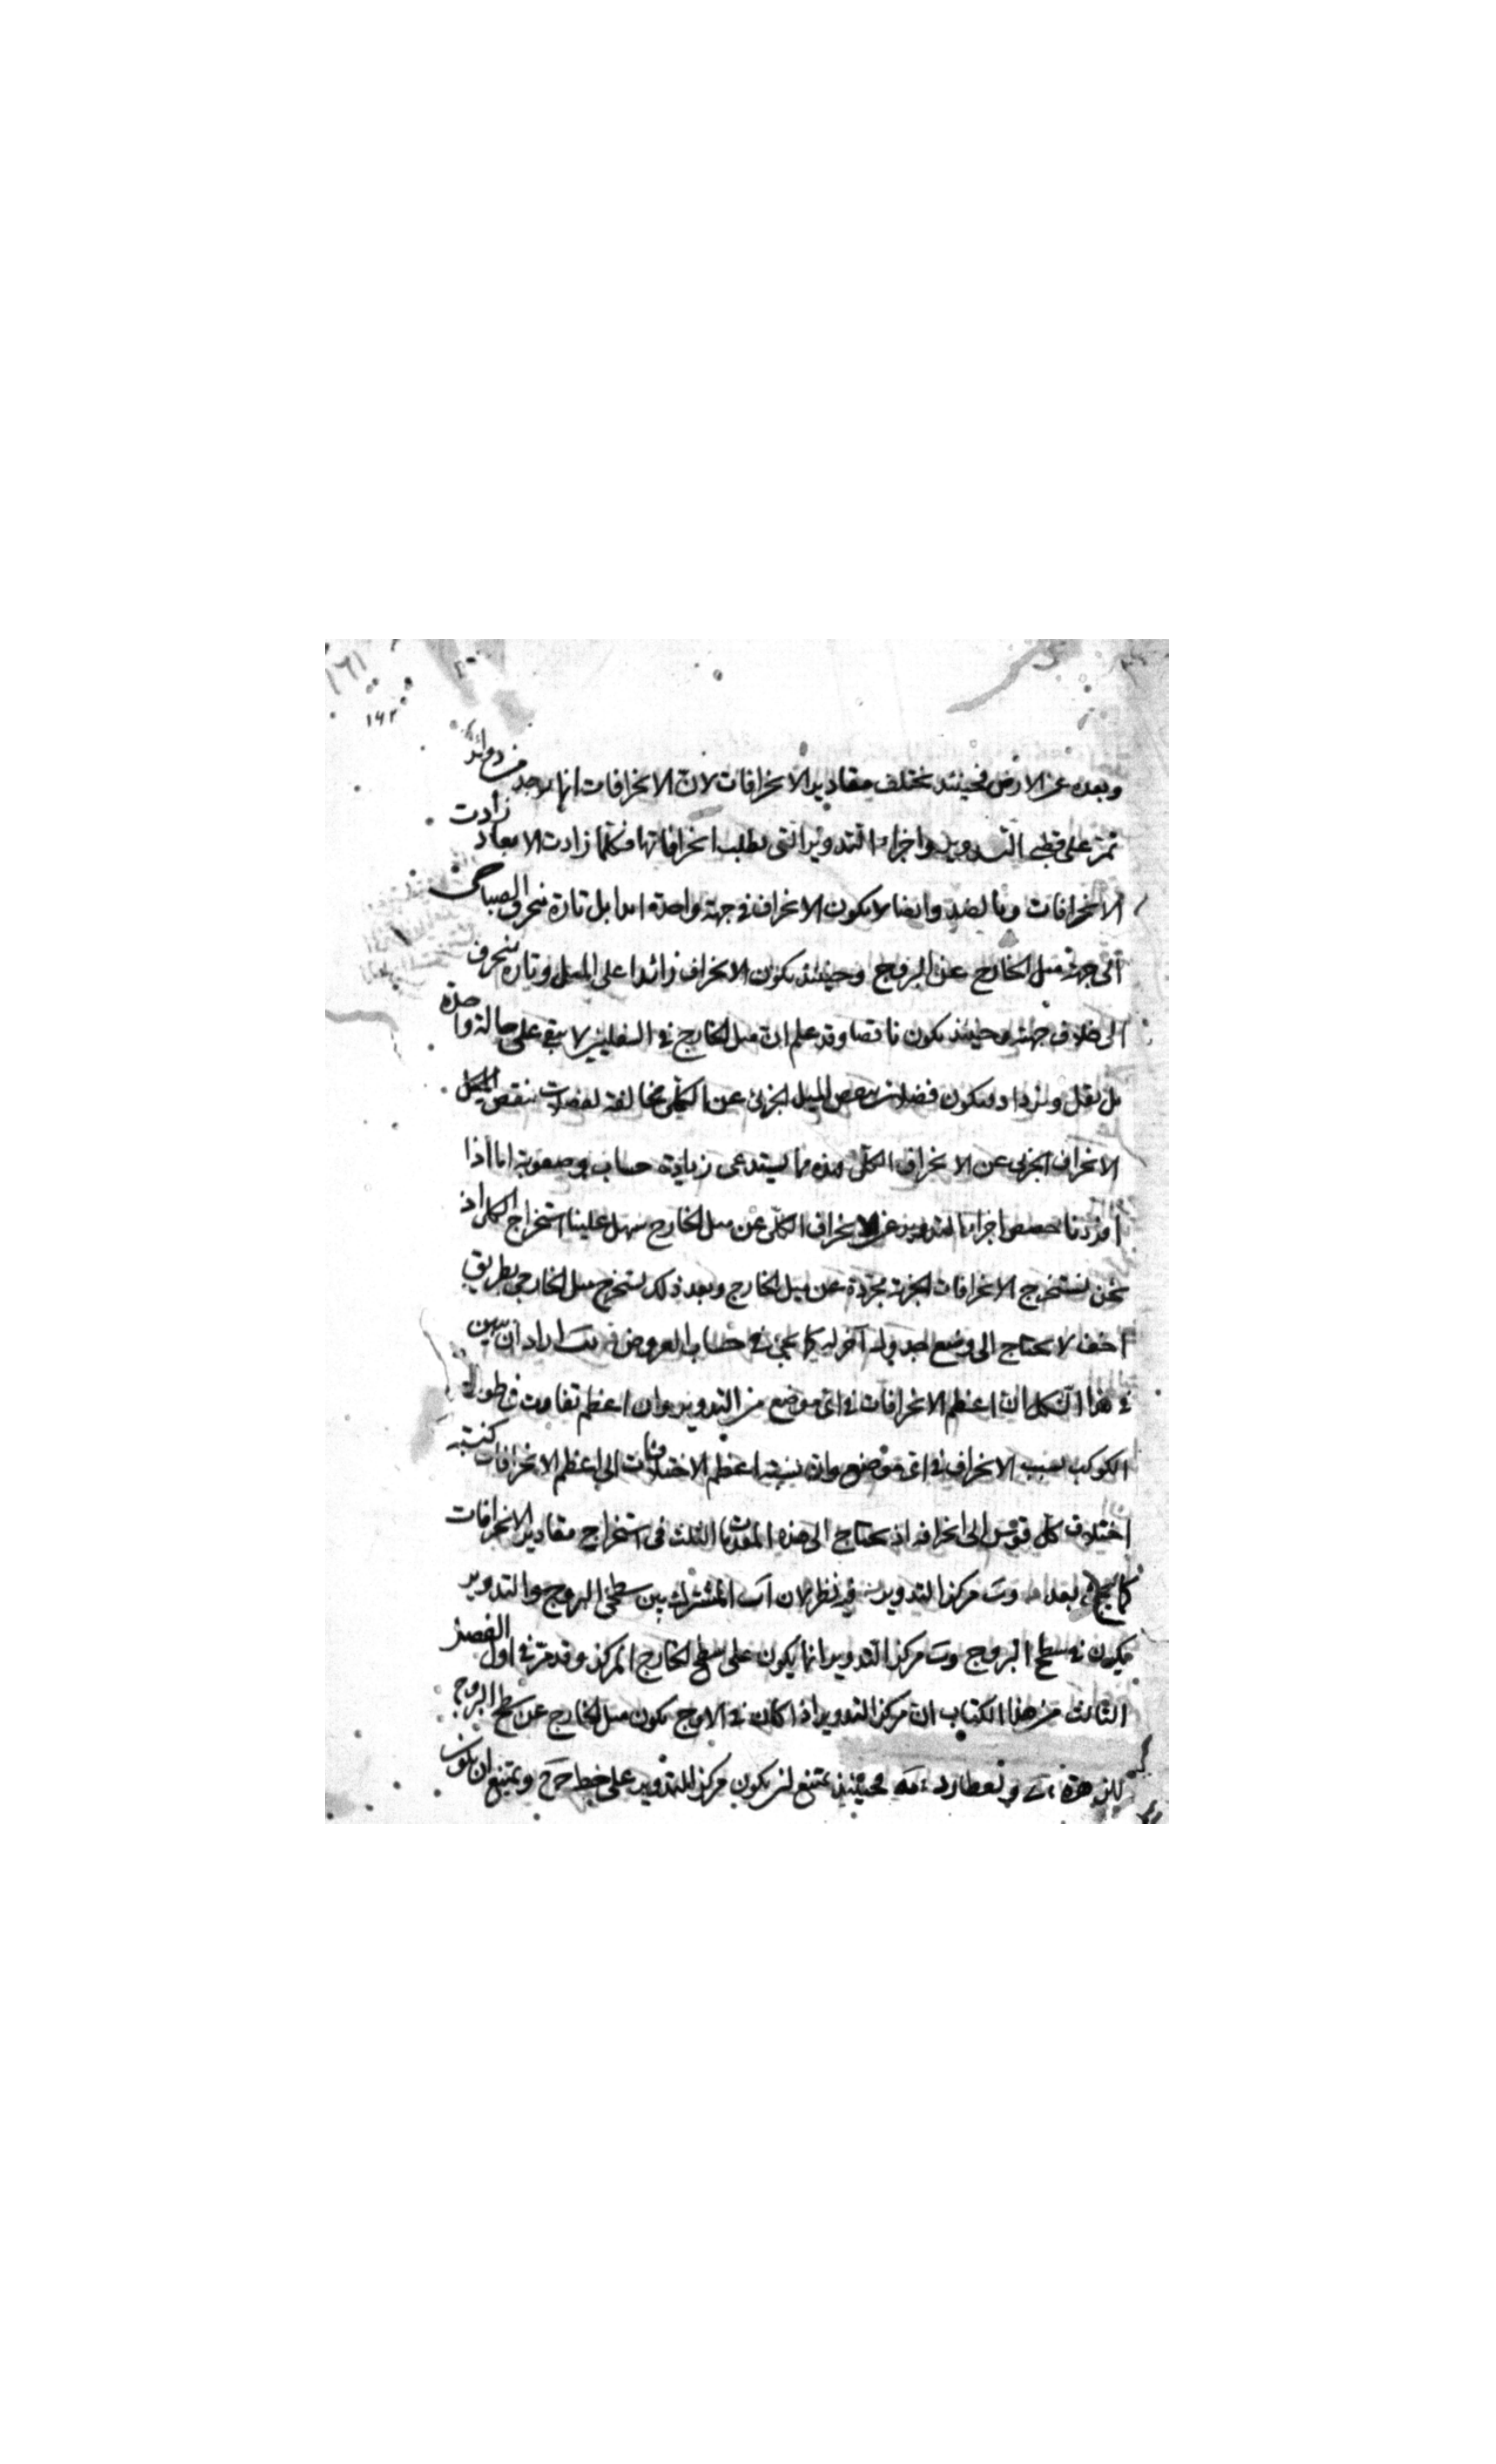 ١٦١
١٦٢
وبعده عن الارض فحينئذ تختلف مقادير الانحرافات لان الانحرافات انها توجد من دوائر
تمر على قطبى التدوير واجزاء التدوير التى يطلب انحرافاتها فكلما زادت الابعاد زادت
الانحرافات وبالضد وايضا لا يكون الانحراف فى جهة واحدة ابدا بل تارة ينحرف الصباحى
الى جهة ميل الخارج عن البروج وحينئذ يكون الانحراف زائدا على الميل وتارة ينحرف
الى خلاف جهته وحينئذ يكون ناقصا وقد علم ان ميل الخارج فى السفليين لا يبقى على حالة واحدة
بل يقل ويزداد ويكون فضلات بعض الميل الجزئى عن الكلى مخالفة لفضلات نقص الميل
الانحراف الجزئى عن الانحراف الكلى هذه مما يستدعى زيادة حساب وصعوبة اما اذا
افردنا حصص اجزاء التدوير عن الانحراف الكلى عن ميل الخارج سهل علينا استخراج الكل اذ
نحن نستخرج الانحرافات الجزئية مجردة عن ميل الخارج وبعد ذلك نستخرج ميل الخارج بطريق
اخف لا يحتاج الى وضع جدول آخر له كما يجئ فى حساب العروض اراد ان يبين
فى هذا الشكل ان اعظم الانحرافات فى اى موضع من التدوير وان اعظم تفاوت فى طول
الكوكب بسبب الانحراف فى اى موضع وان نسبة اعظم الاختلافات الى اعظم الانحرافات كنسبة
اختلاف كل قوس الى انحرافه اذ يحتاج الى هذه المقدمات الثلث فى استخراج مقادير الانحرافات
كما يجئ بعد وب مركز التدوير فيه نظر لان اب المشترك بين سطحى البروج والتدوير
فيكون فى سطح البروج وب مركز التدوير انما يكون على سطح الخارج المركز وقد مر فى اول الفصل
الثالث من هذا الكتاب ان مركز التدوير اذا كان فى الاوج يكون ميل الخارج عن سطح البروج
للزهرة ى ولعطارد مه فحينئذ يمتنع ان يكون مركز التدوير على خط ويمتنع ان يكون